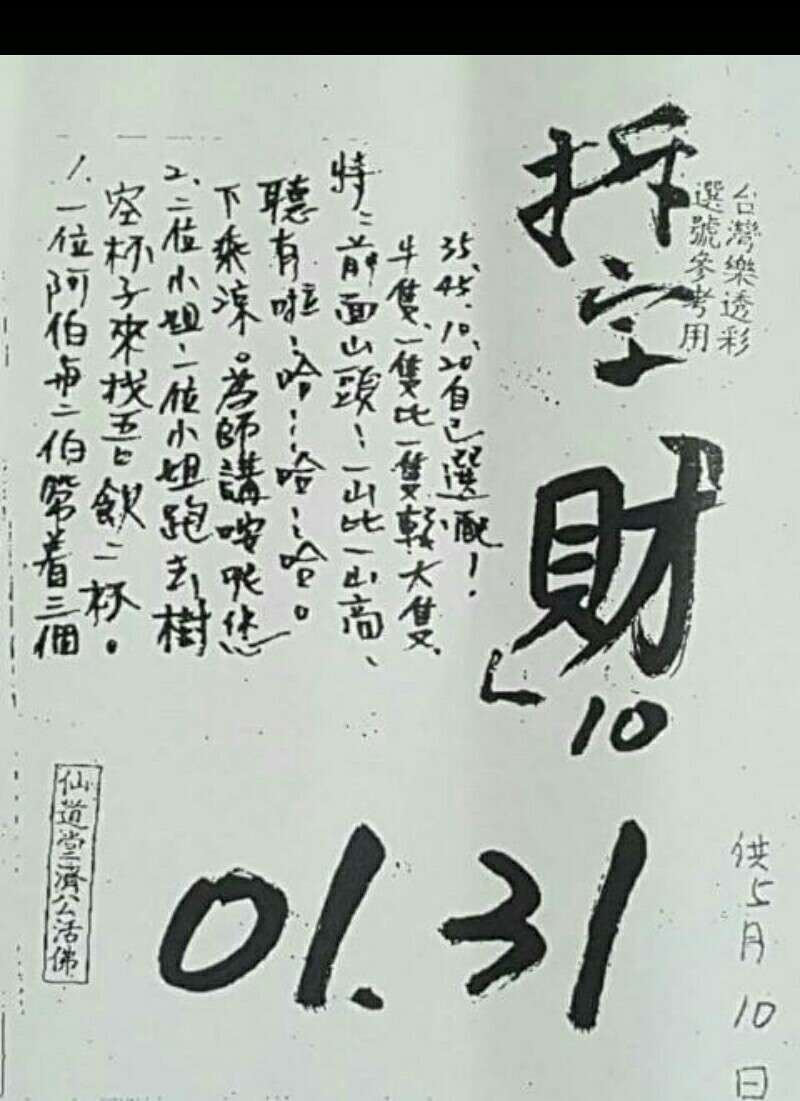 台灣樂透彩
選號參考用
拆字財
10
01.31
35、45、10、20自己選配！
牛隻、一隻比一隻較大隻、
特：前面山頭、一山比一山高、
聽有啦、哈、哈、哈。
下乘涼。為師講
2、二位小姐、一位小姐跑去樹
空杯子來找吾飲二杯。
1、一位阿伯二伯帶着三個
仙道堂濟公活佛
供5月10日